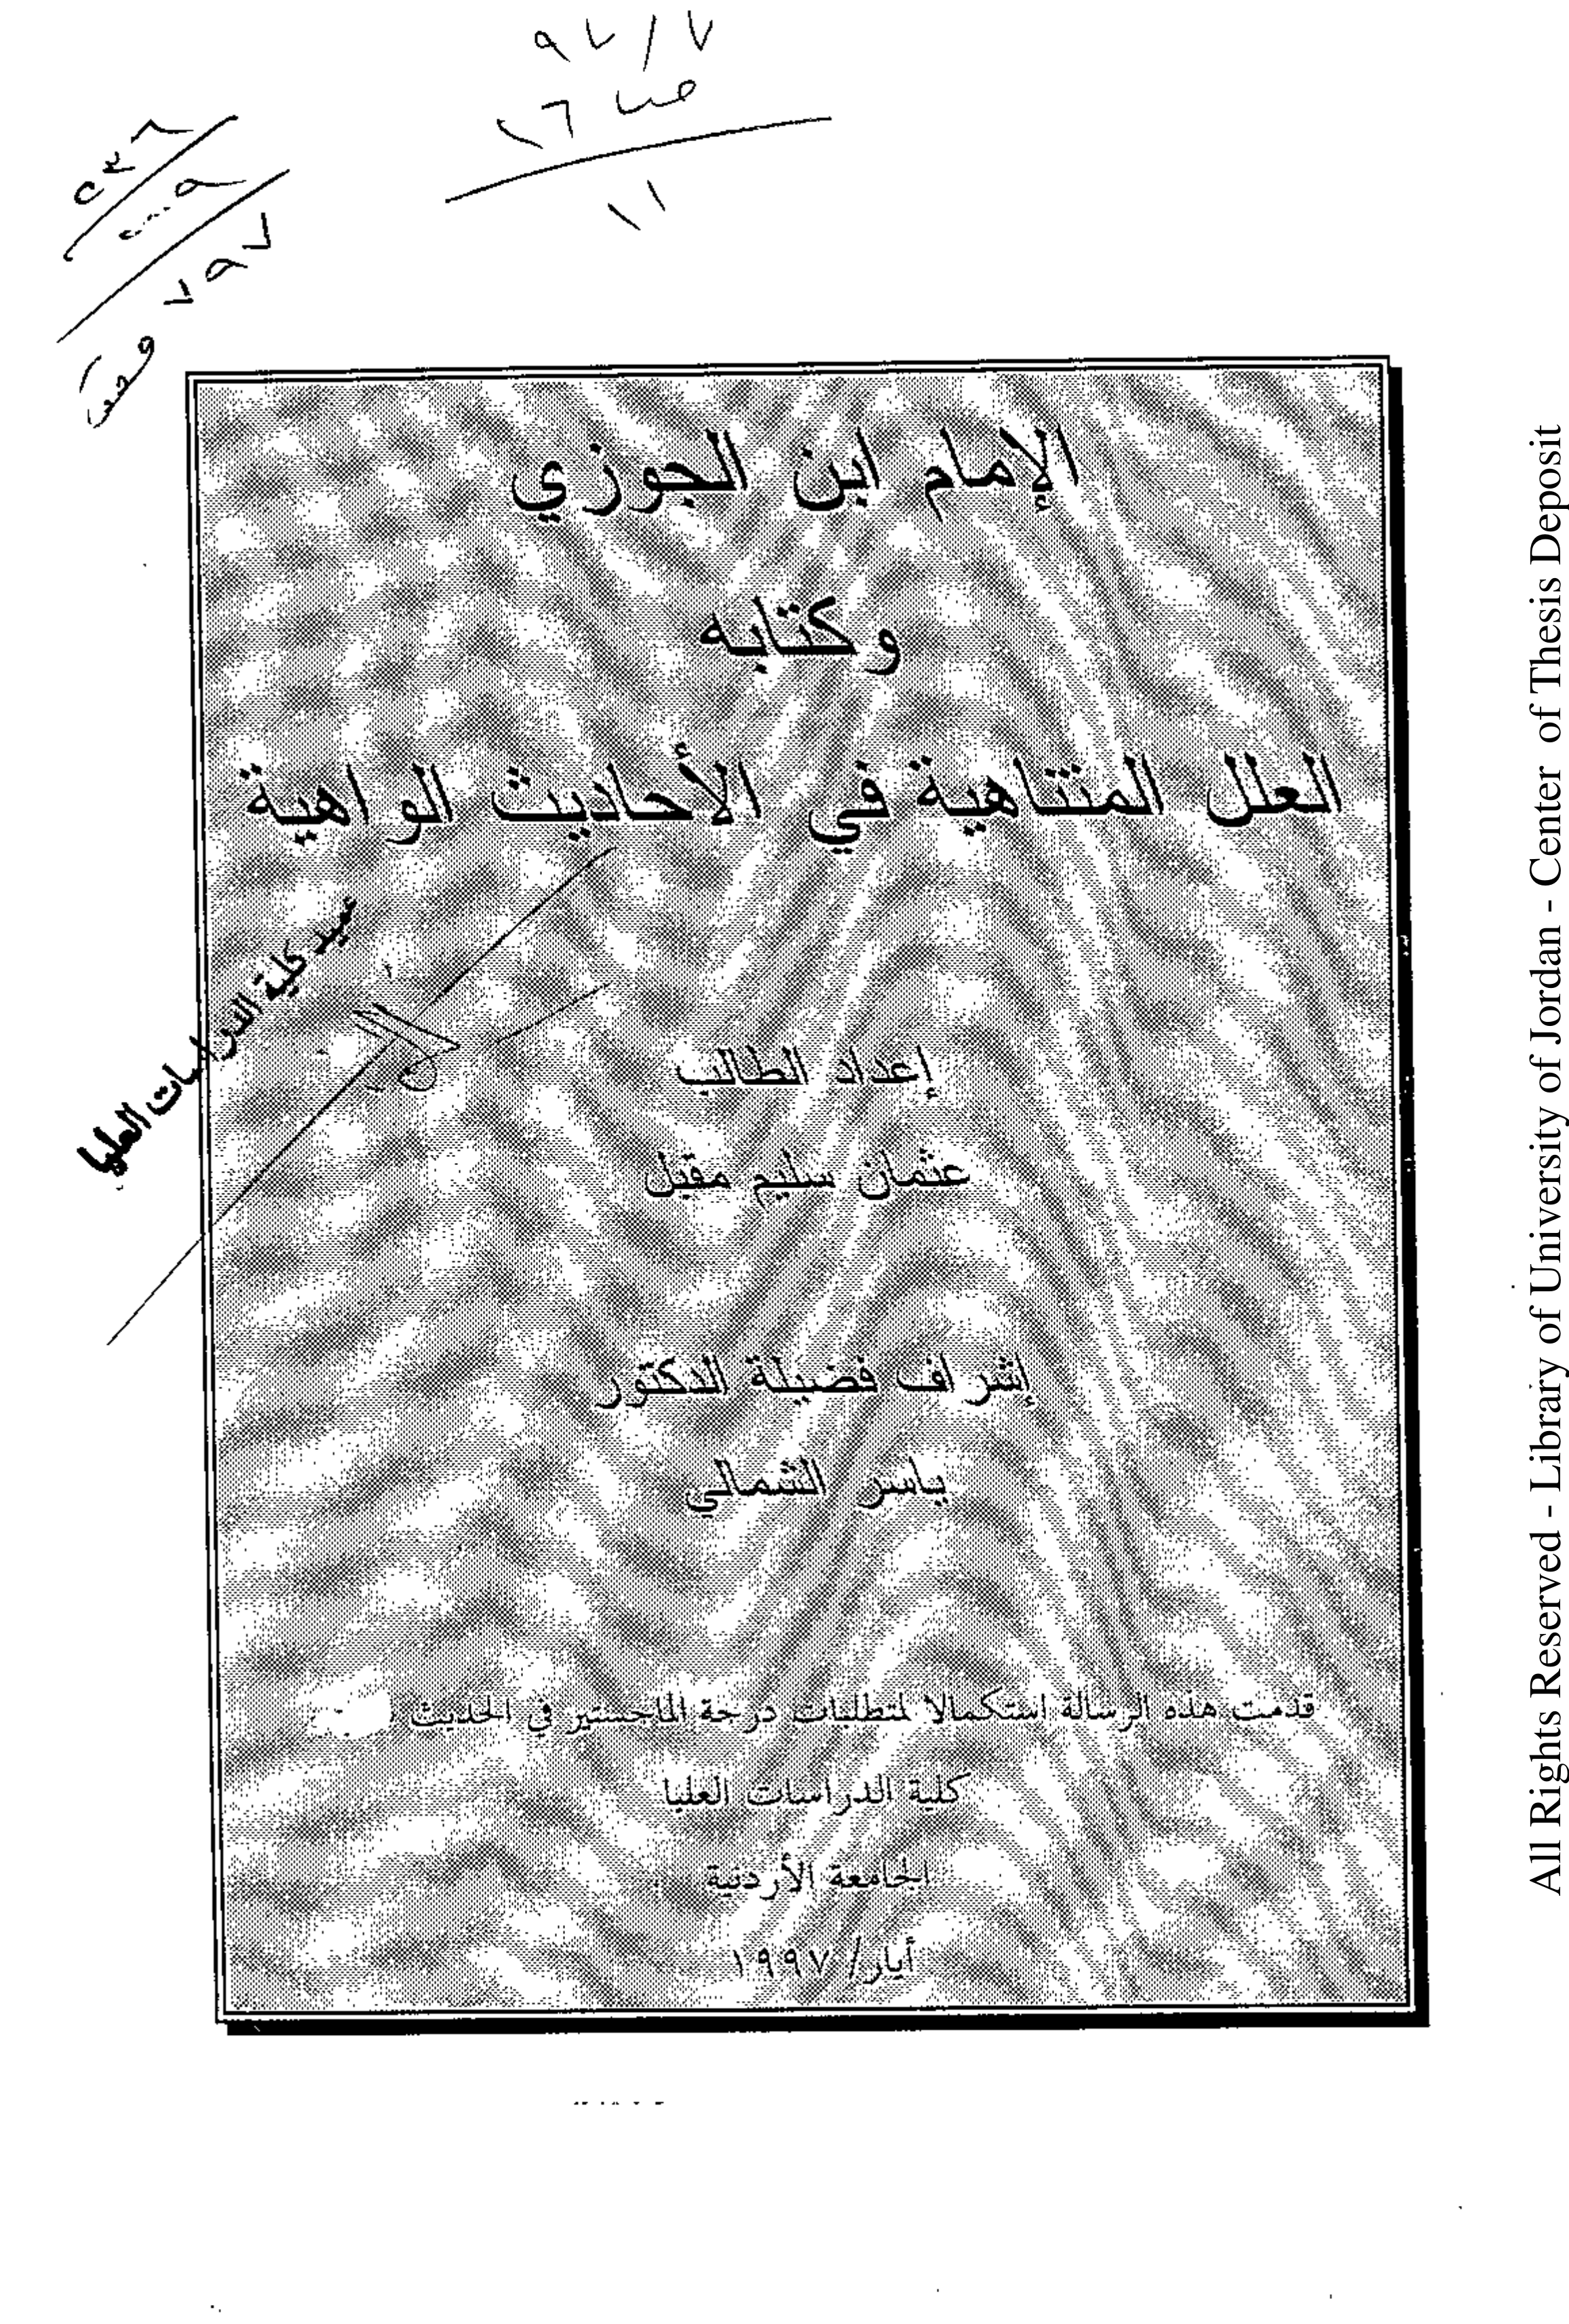 ٩٧/٧
١١
الإمام ابن الجوزي
وكتابه
العلل المتناهية في الأحاديث الواهية
عميد كلية الدراسات العليا
إعداد الطالب
عثمان سليم مقبل
إشراف فضيلة الدكتور
ياسر الشمالي
قدمت هذه الرسالة استكمالا لمتطلبات درجة الماجستير في الحديث
كلية الدراسات العليا
الجامعة الأردنية
أيار/ ١٩٩٧
All Rights Reserved - Library of University of Jordan - Center of Thesis Deposit